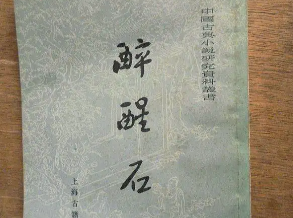 中國古典小說研究資料叢書
醉醒石
上海古籍